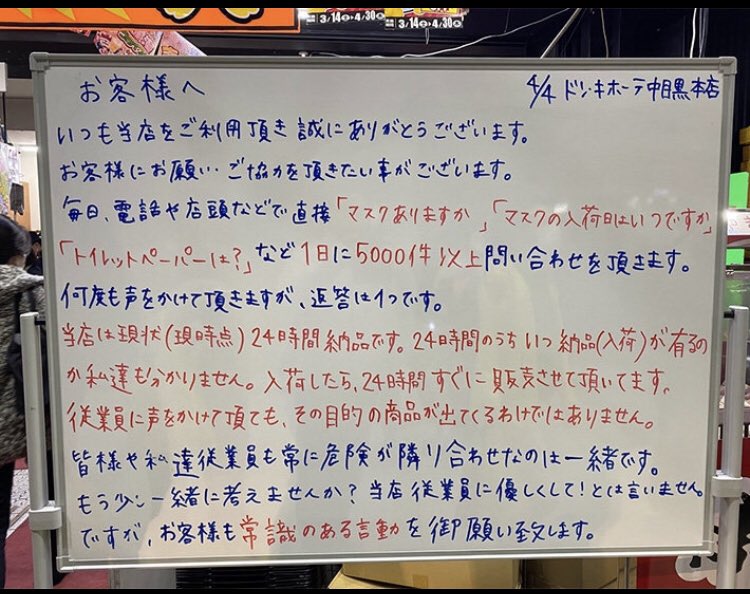 3/14㊏▸4/30㊍
3/14㊏▸4/30㊍
お客様へ
4/4 ドン・キホーテ中目黒本店
いつも当店をご利用頂き誠にありがとうございます。
お客様にお願い・ご協力を頂きたい事がございます。
毎日、電話や店頭などで直接「マスクありますか」「マスクの入荷日はいつですか」
「トイレットペーパーは?」など1日に5000件以上問い合わせを頂きます。
何度も声をかけて頂きますが、返答は1つです。
当店は現状(現時点)24時間納品です。24時間のうちいつ納品(入荷)が有るの
か私達も分かりません。入荷したら、24時間すぐに販売させて頂いてます。
従業員に声をかけて頂ても、その目的の商品が出てくるわけではありません。
皆様や私達従業員も常に危険が隣り合わせなのは一緒です。
もう少し一緒に考えませんか?当店従業員に優しくして!とは言いません。
ですが、お客様も常識のある言動を御願い致します。